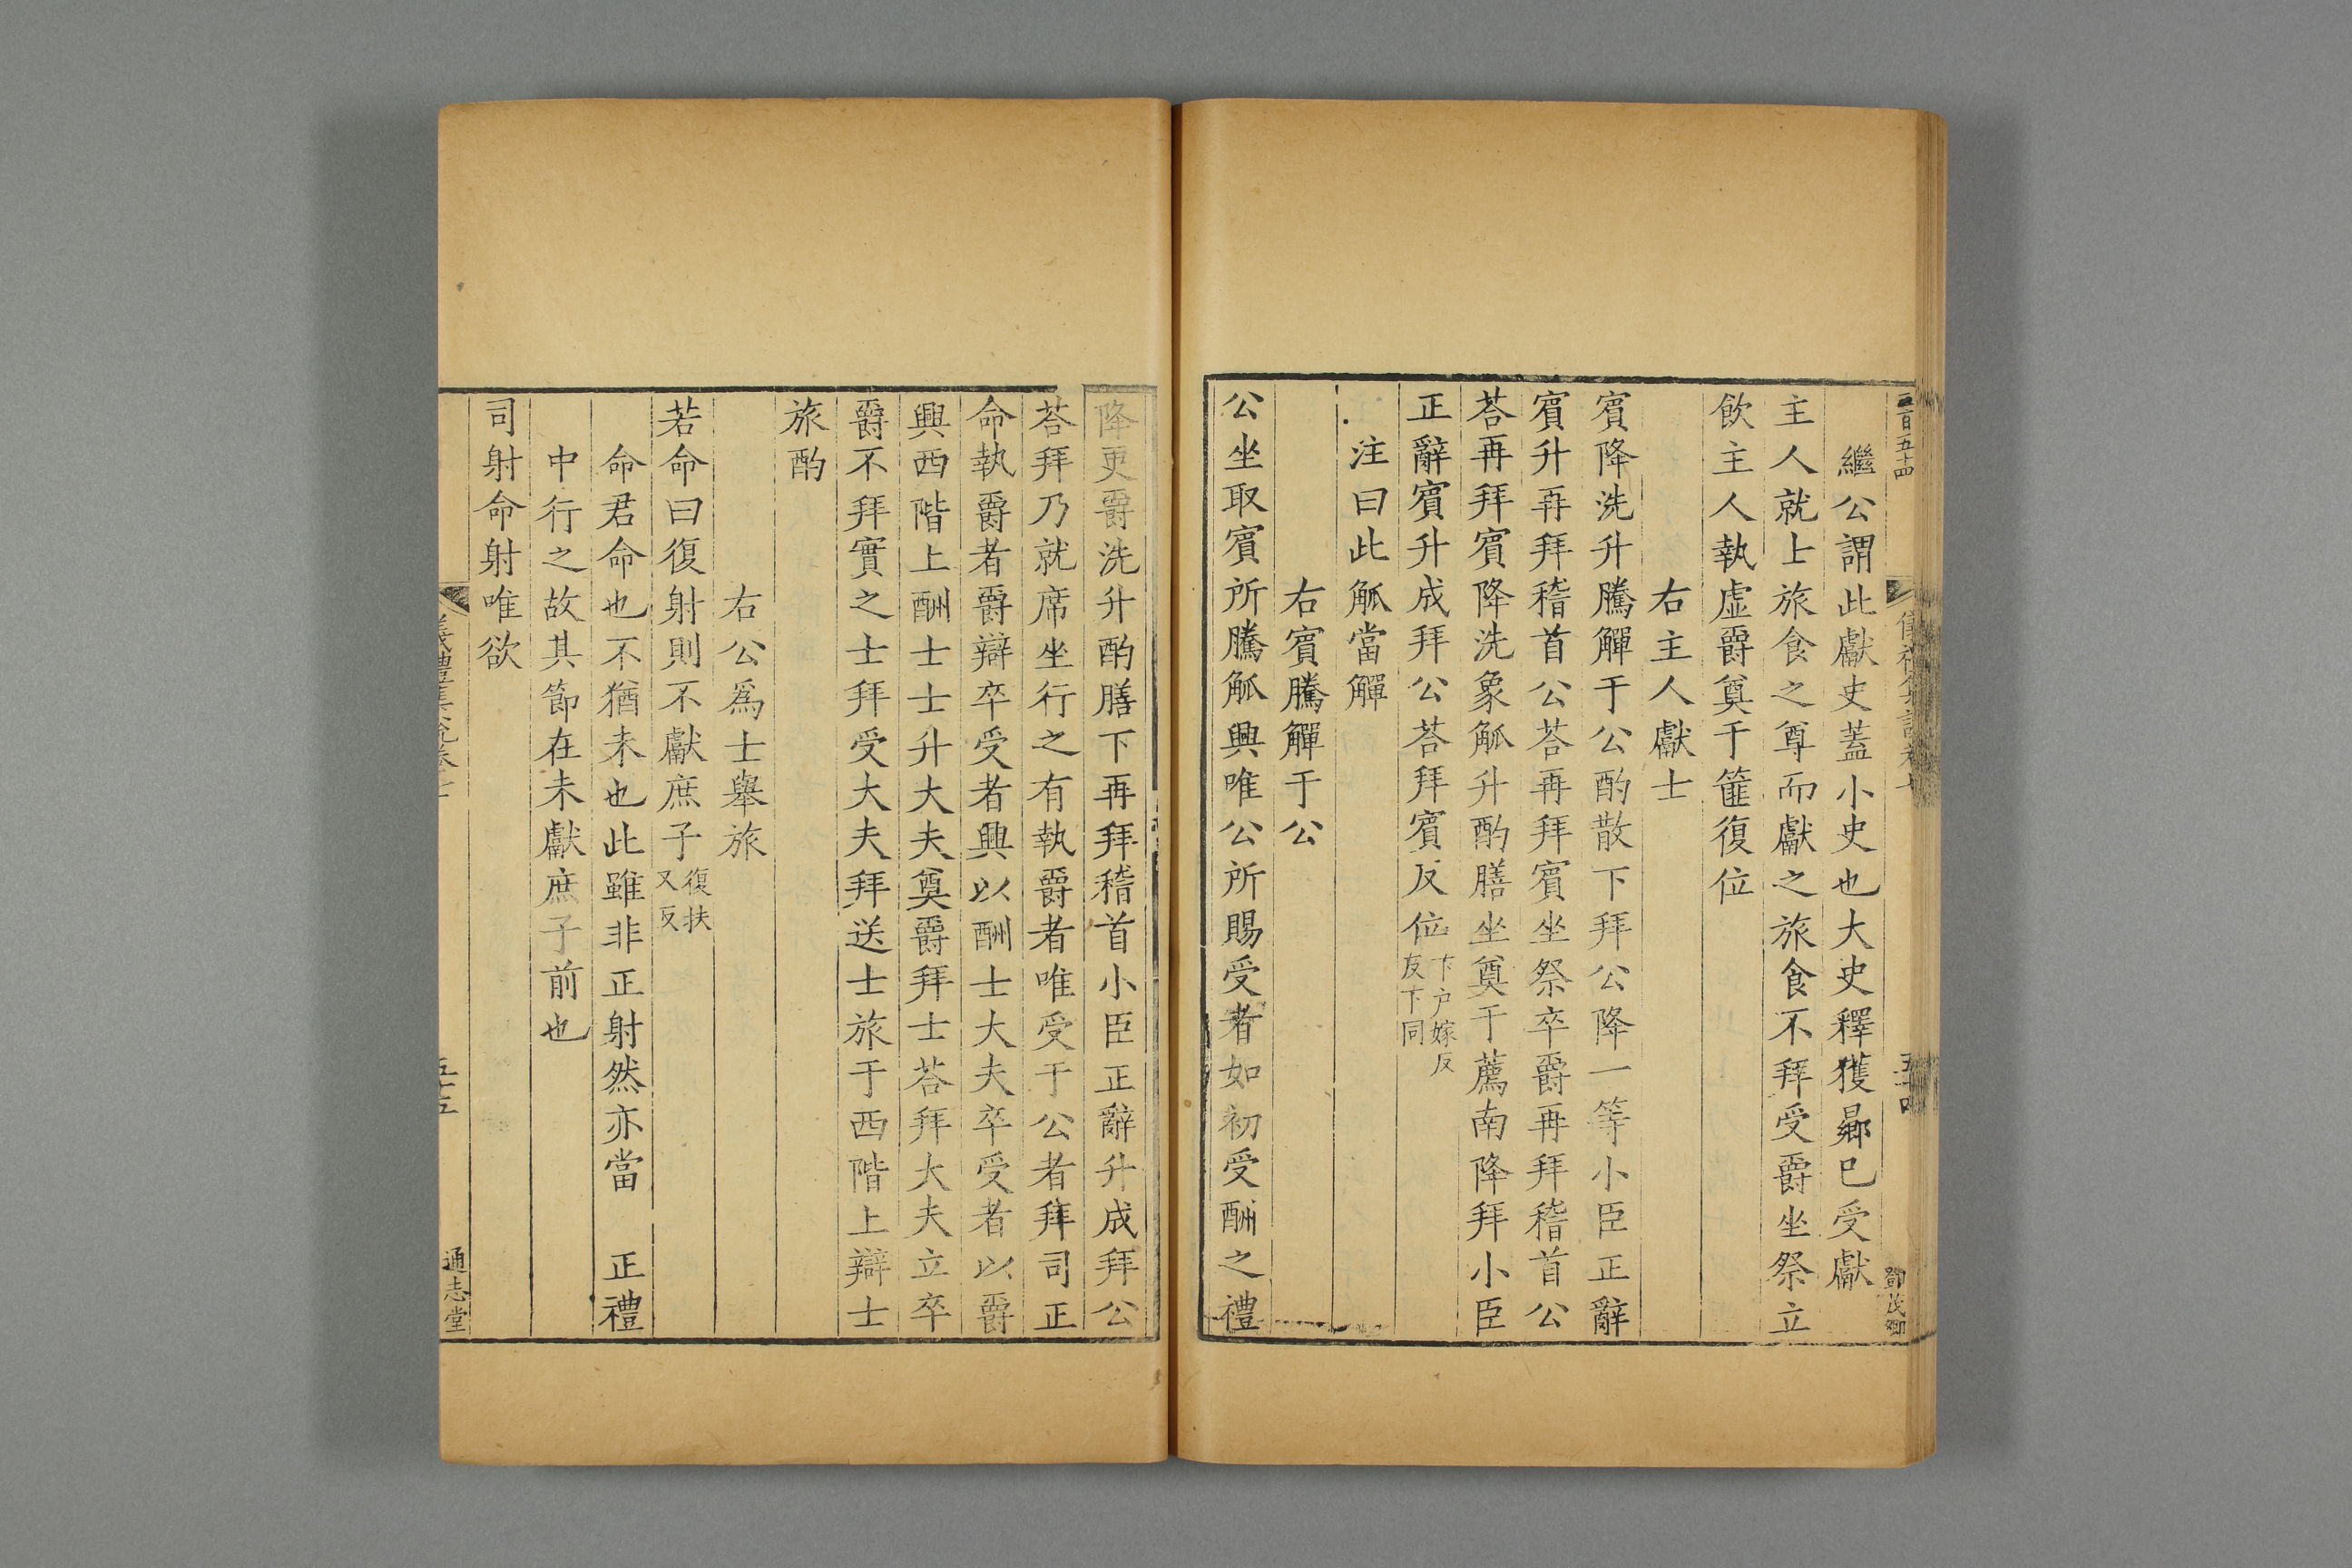 三百五十四
五十四
鄧茂卿
繼公謂此獻史蓋小史也大史釋獲曏已受獻
主人就士旅食之尊而獻之旅食不拜受爵坐祭立
飲主人執虛爵奠于篚復位
右主人獻士
賓降洗升騰觶于公酌散下拜公降一等小臣正辭
賓升再拜稽首公荅再拜賓坐祭卒爵再拜稽首公
荅再拜賓降洗象觚升酌膳坐奠于薦南降拜小臣
正辭賓升成拜公荅拜賓反位
下戶嫁反
反下同
注曰此觚當觶
右賓騰觶于公
公坐取賓所騰觚興唯公所賜受者如初受酬之禮
降更爵洗升酌膳下再拜稽首小臣正辭升成拜公
荅拜乃就席坐行之有執爵者唯受于公者拜司正
命執爵者爵辯卒受者興以酬士大夫卒受者以爵
興西階上酬士士升大夫奠爵拜士荅拜大夫立卒
爵不拜實之士拜受大夫拜送士旅于西階上辯士
旅酌
右公爲士舉旅
若命曰復射則不獻庶子
復扶
又反
命君命也不猶未也此雖非正射然亦當 正禮
中行之故其節在未獻庶子前也
司射命射唯欲
五十五
通志堂